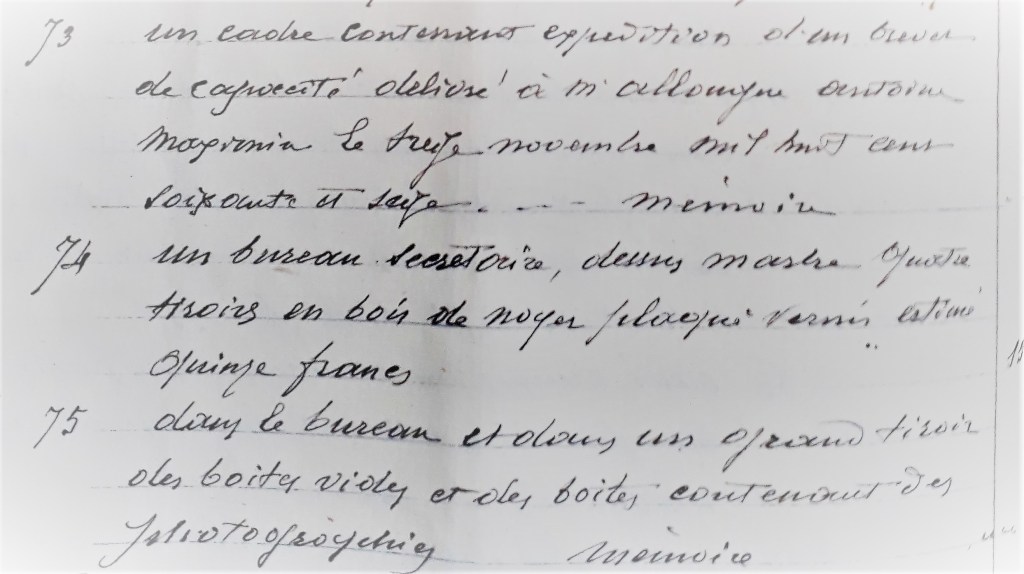 73 un cadre contenant expedition d'un brevet
de capacité délivré à m allongue antoine
maximin le treize novembre mil huit cent
soixante et seize . - - - mémoire
74 un bureau secretaire, dessus marbre quatre
tiroirs en bois de noyer plaqué vernis estimé
quinze francs 15
75 dans le bureau et dans un grand tiroir
des boites vides et des boites contenant des
photographies mémoire